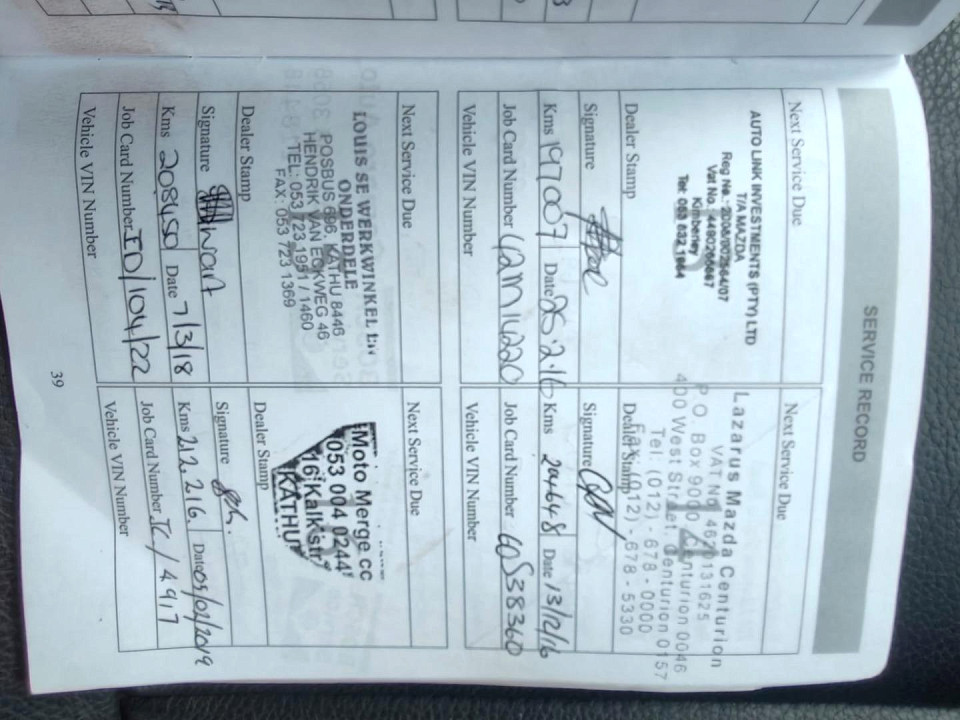 SERVICE RECORD
Next Service Due
AUTO LINK INVESTMENTS (PTY) LTD
T/A MAZDA
Reg No.: 2008/002564/07
Vat No. 4490205687
Kimberley
Tel: 053 832 1964
Dealer Stamp
Signature
Kms 197007 Date 25.2.16
Job Card Number
Vehicle VIN Number
Next Service Due
Lazarus Mazda Centurion
VAT No 4670131625
P.O. Box 9000 Centurion 0046
400 West Street, Centurion 0157
Tel: (012) - 678 - 0000
Fax: (012) - 678 - 5330
Dealer Stamp
Signature
Kms 204648 Date 13/12/16
Job Card Number 60S38360
Vehicle VIN Number
Next Service Due
LOUIS SE WERKWINKEL EN
ONDERDELE
POSBUS 696, KATHU 8446
HENDRIK VAN ECKWEG 46
TEL: 053 723 1951 / 1460
FAX: 053 723 1369
Dealer Stamp
Signature
Kms 208450 Date 7/3/18
Job Card Number ID/104/22
Vehicle VIN Number
Next Service Due
Moto Merge cc
053 004 0244
16 Kalk str
KATHU
Dealer Stamp
Signature
Kms 212.216. Date 05/02/2019
Job Card Number JC/4917
Vehicle VIN Number
39